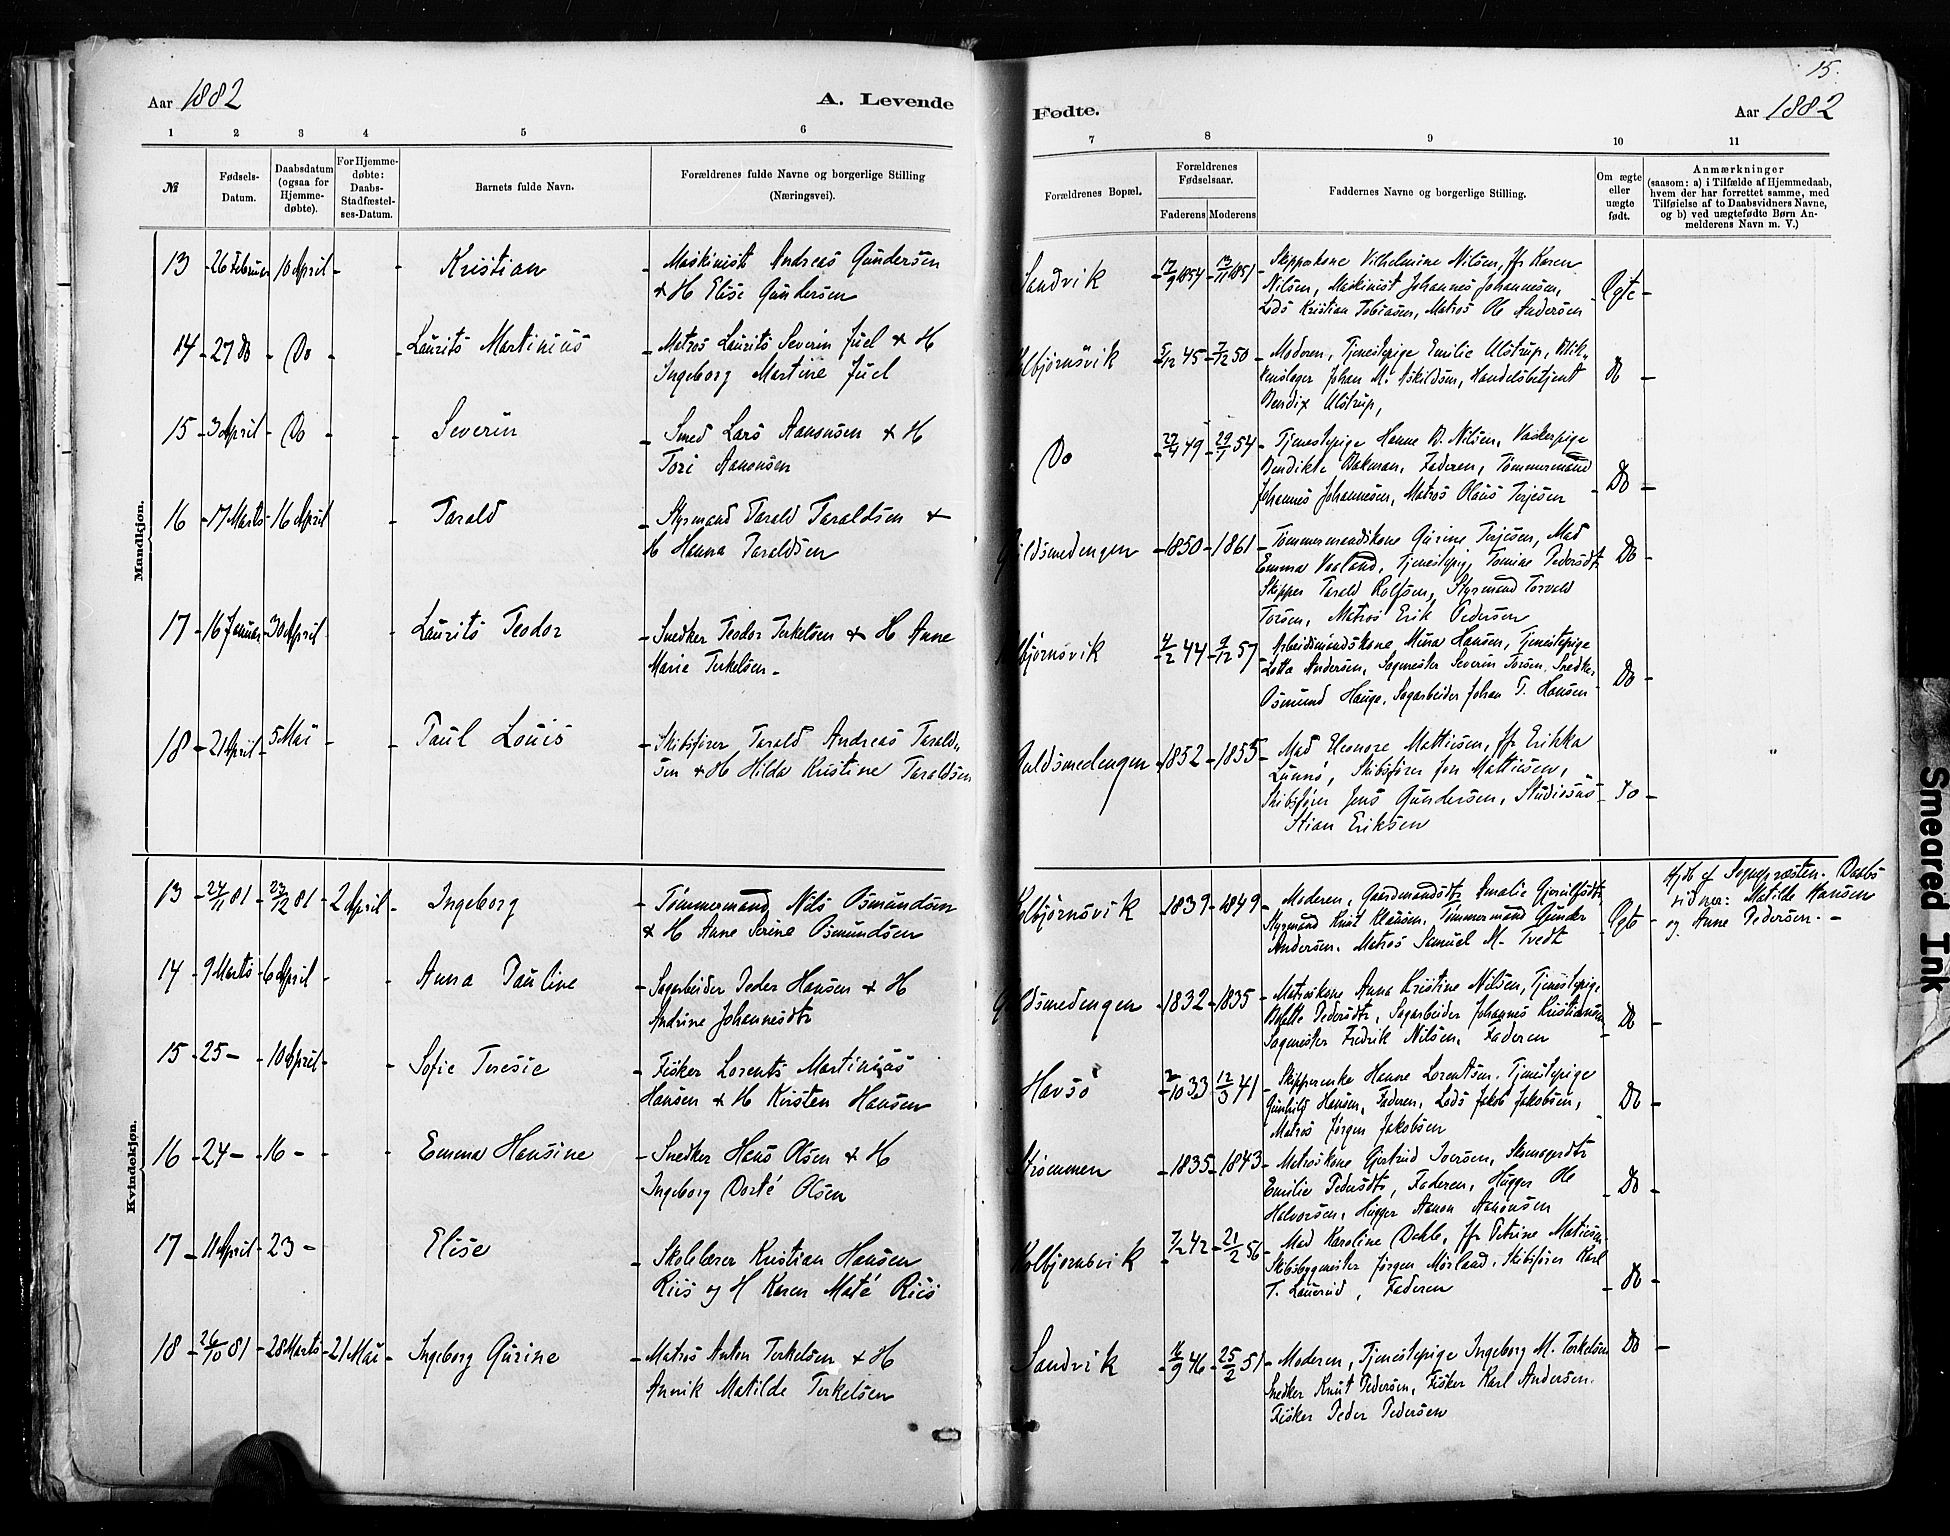 15.
Aar 1882
A. Levende
Fødte.
Aar 1882
1 2 3 4 5 6
7 8 9 10 11
№
Fødsels-
Datum.
Daabsdatum
(ogsaa for
Hjemme-
døbte).
For Hjemme-
døbte:
Daabs-
Stadfæstel-
ses-Datum.
Barnets fulde Navn.
Forældrenes fulde Navne og borgerlige Stilling
(Næringsvei).
Forældrenes Bopæl.
Forældrenes
Fødselsaar.
Faderens Moderens
Faddernes Navne og borgerlige Stilling.
Om ægte
eller
uægte
født.
Anmærkninger
(saasom: a) i Tilfælde af Hjemmedaab,
hvem der har forrettet samme, med
Tilføielse af to Daabsvidners Navne,
og b) ved uægtefødte Børn An-
melderens Navn m. V.)
Mandkjøn.
13 - 26 Februar 10 April - - Kristian - Maskinist Andreas Gundersen
& H Elise Gundersen
Sandvik - 17/9 1854 - 13/11 1851 - Skipperkone Vilhelmine Nilsen, Jfr Karen
Nilsen, Maskinist Johannes Johannesen,
Lods Kristian Tobiasen, Matros Ole Andersen - Ægte -
14 - 27 Do - Do - - Laurits Martinius - Matros Laurits Severin Juel & H
Ingeborg Martine Juel
Kolbjørnsvik - 5/12 45 - 7/12 50 - Moderen, Tjenestepige Emilie Ulstrup, Blik-
kenslager Johan M. Askildsen, Handelsbetjent
Bendix Ulstrup, Do -
15 - 3 April - Do - - Severin - Smed Lars Aanonsen & H
Tori Aanonsen
Do - 22/4 49 - 29/1 54 - Tjenestepige Hanne B. Nilsen, Vaskerpige
Bendikte Bakman, Faderen, Tømmermand
Johannes Johannesen, Matros Olaus Terjesen - Do -
16 - 17 Marts - 16 April - Tarald - Styrmand Tarald Taraldsen &
H Hanna Taraldsen
Guldsmedengen - 1850 - 1861 - Tømmermandskone Gurine Terjesen, Mad
Emma Vaaland, Tjenestepig, Tomine Pedersdtr
Skipper Tarald Rolfsen, Styrmand Torvald
Torsen, Matros Erik Pedersen - Do -
17 - 16 Januar - 30 April - Laurits Teodor - Snedker Teodor Terkelsen & H Anne
Marie Terkelsen -
Kolbjørnsvik - 4/2 44 - 9/12 57 - Arbeidsmandskone Mina Hansen, Tjenestepige
Lotta Andersen, Sagmester Severin Torsen, Snedker
Osmund Hauge, Sagarbeider Johan T. Hansen - Do -
18 - 21 April - 5 Mai - - Paul Louis - Skibsfører Tarald Andreas Tarald-
sen & H Hilda Kristine Taraldsen
Guldsmedengen - 1852 - 1855 - Mad Eleonore Mattiesen, Jfr Erikka
Lunnø, Skibsfører Jon Mattiesen,
Skibsfører Jens Gundersen, Studiosus
Stian Eriksen - Do -
Kvindekjøn.
13 - 24/11 81 - 23/12 81 - 2 April - Ingeborg - Tømmermand Nils Osmundsen
& H Anne Serine Osmundsen
Kolbjørnsvik - 1839 - 1849 - Moderen, Gaardmandsdtr Amalie Gjeruldsdtr
Styrmand Knut Klausen, Tømmermand Gunder
Andersen, Matros Samuel M. Tvedt - Ægte - Hjdb af Sognepræsten. Daabs
vidner: Matilde Hansen
og Anne Pedersen. -
14 - 9 Marts - 6 April - - Anna Pauline - Sagarbeider Peder Hansen & H
Andrine Johannesdtr
Guldsmedengen - 1832 - 1835 - Matroskone Anna Kristine Nilsen, Tjenestepige
Bolette Pedersdtr, Sagarbeider Johannes Kristiansen
Sagmester Fredrik Nilsen, Faderen - Do -
15 - 25 - - 10 April - - Sofie Teresie - Fisker Lorents Martinius
Hansen & H Kirsten Hansen
Havsö - 2/10 33 - 12/3 41 - Skipperenke Hanne Lorentsen, Tjenestepige
Gunhild Hansen, Faderen, Lods Jakob Jakobsen,
Matros Jørgen Jakobsen - Do -
16 - 24 - - 16 - - Emma Hansine - Snedker Hans Olsen & H
Ingeborg Dorté Olsen
Strømmen - 1835 - 1843 - Matroskone Gjertrud Iversen, Skomagerdtr
Emilie Pedersdtr, Faderen, Hugger Ole
Halvorsen, Hugger Aanon Aanonsen - Do -
17 - 11 April - 23 - - Elise - Skolelærer Kristian Hansen
Riis og H Karen Maté Riis
Kolbjørnsvik - 7/2 42 - 21/2 56 - Mad Karoline Dekle, Jfr Petrine Matiesen
Skibsbygmester Jørgen Mørland, Skibsfører Karl
T. Lauerud, Faderen - Do -
18 - 26/10 81 - 28 Marts - 21 Mai - Ingeborg Gurine - Matros Anton Terkelsen & H
Annik Matilde Terkelsen
Sandvik - 16/9 46 - 25/2 51 - Moderen, Tjenestepige Ingeborg M. Terkelsen
Snedker Knut Pedersen, Fisker Karl Andersen.
Fisker Peder Pedersen Do -
Smeared Ink